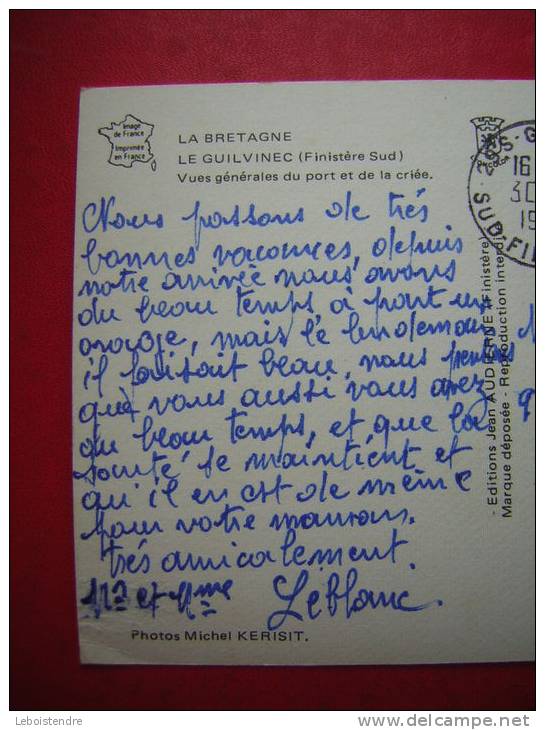 Image
de France
Imprimée
en France
LA BRETAGNE
LE GUILVINEC (Finistère Sud)
Vues générales du port et de la criée.
29S-G
16
30
19
SUD-FI
Nous passons de très
bonnes vacances, depuis
notre arrivée nous avons
du beau temps, à part un
orage, mais le lendemain
il faisait beau, nous pensons
que vous aussi vous avez
du beau temps, et que la
santé se maintient et
qu'il en est de même
pour votre maman.
très amicalement.
Mr et Mme Leblanc.
Photos Michel KERISIT.
- Editions Jean AUDIERNE (Finistère)
Marque déposée - Reproduction interdi
Leboistendre
www.delcampe.net